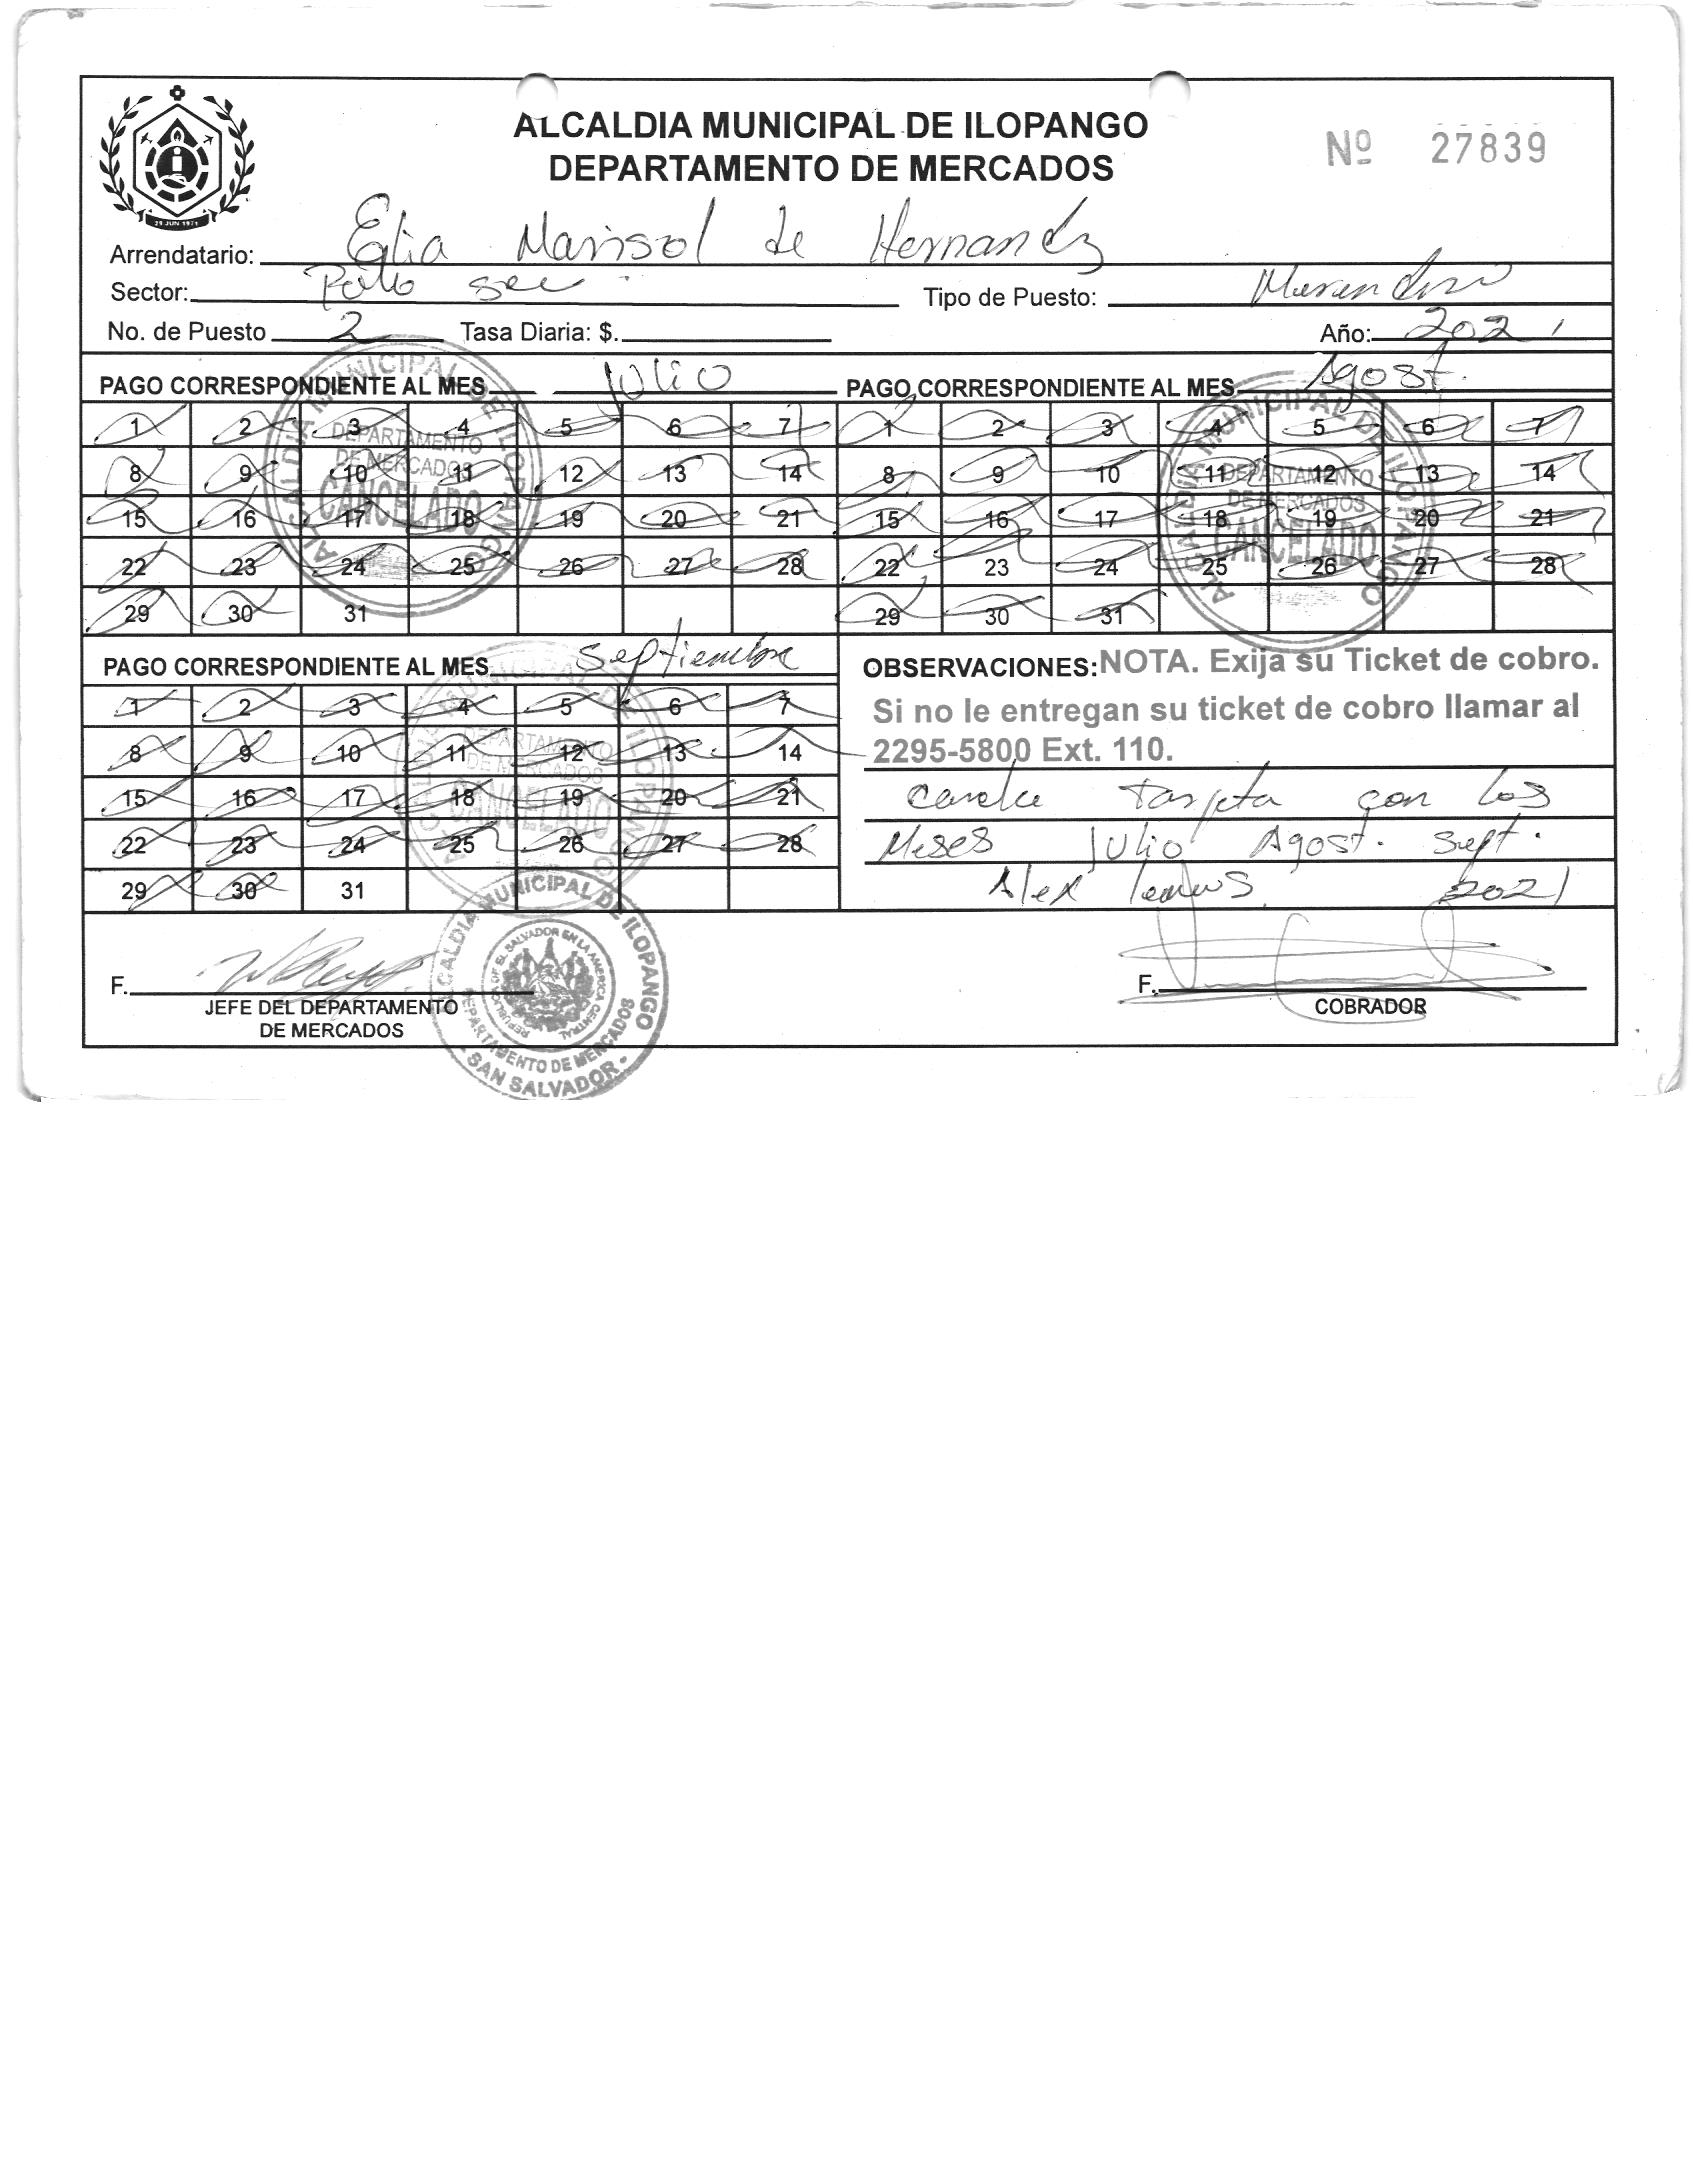 ALCALDIA MUNICIPAL DE ILOPANGO
DEPARTAMENTO DE MERCADOS
Nº 27839
29 JUN 1971
Arrendatario: Elia Marisol de Hernandez
Sector: Pollo Tipo de Puesto:
No. de Puesto 2 Tasa Diaria: $. Año: 2021
PAGO CORRESPONDIENTE AL MES Julio
1 2 3 4 5 6 7
8 9 10 11 12 13 14
15 16 17 18 19 20 21
22 23 24 25 26 27 28
29 30 31
ALCALDIA MUNICIPAL DE ILOPANGO
DEPARTAMENTO
DE MERCADOS
CANCELADO
PAGO CORRESPONDIENTE AL MES Agost.
1 2 3 4 5 6 7
8 9 10 11 12 13 14
15 16 17 18 19 20 21
22 23 24 25 26 27 28
29 30 31
ALCALDIA MUNICIPAL DE ILOPANGO
DEPARTAMENTO
DE MERCADOS
CANCELADO
PAGO CORRESPONDIENTE AL MES Septiembre
1 2 3 4 5 6 7
8 9 10 11 12 13 14
15 16 17 18 19 20 21
22 23 24 25 26 27 28
29 30 31
ALCALDIA MUNICIPAL DE ILOPANGO
DEPARTAMENTO
DE MERCADOS
CANCELADO
OBSERVACIONES: NOTA. Exija su Ticket de cobro.
Si no le entregan su ticket de cobro llamar al
2295-5800 Ext. 110.
Tarjeta con los
Meses Julio Agost. Sept.
Alex 2021
F.
JEFE DEL DEPARTAMENTO
DE MERCADOS
ALCALDIA MUNICIPAL DE ILOPANGO
REPUBLICA DE EL SALVADOR EN LA AMERICA CENTRAL
DEPARTAMENTO DE MERCADOS
SAN SALVADOR
F.
COBRADOR